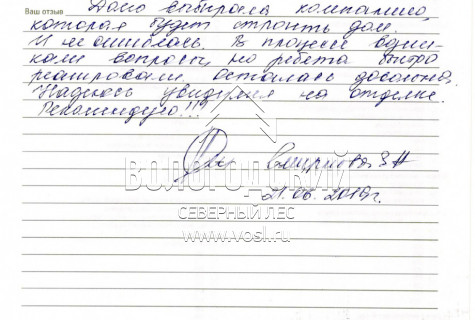 Ваш отзыв Долго выбирала компанию,
которая будет строить дом.
И не ошиблась. В процессе возни-
кали вопросы, но ребята быстро
реагировали. Осталась довольна.
Надеюсь увидимся на отделке.
Рекомендую!!!
Смирнова З.Н
21.06.2019г.
ВОЛОГОДСКИЙ
СЕВЕРНЫЙ ЛЕС
www.vosl.ru